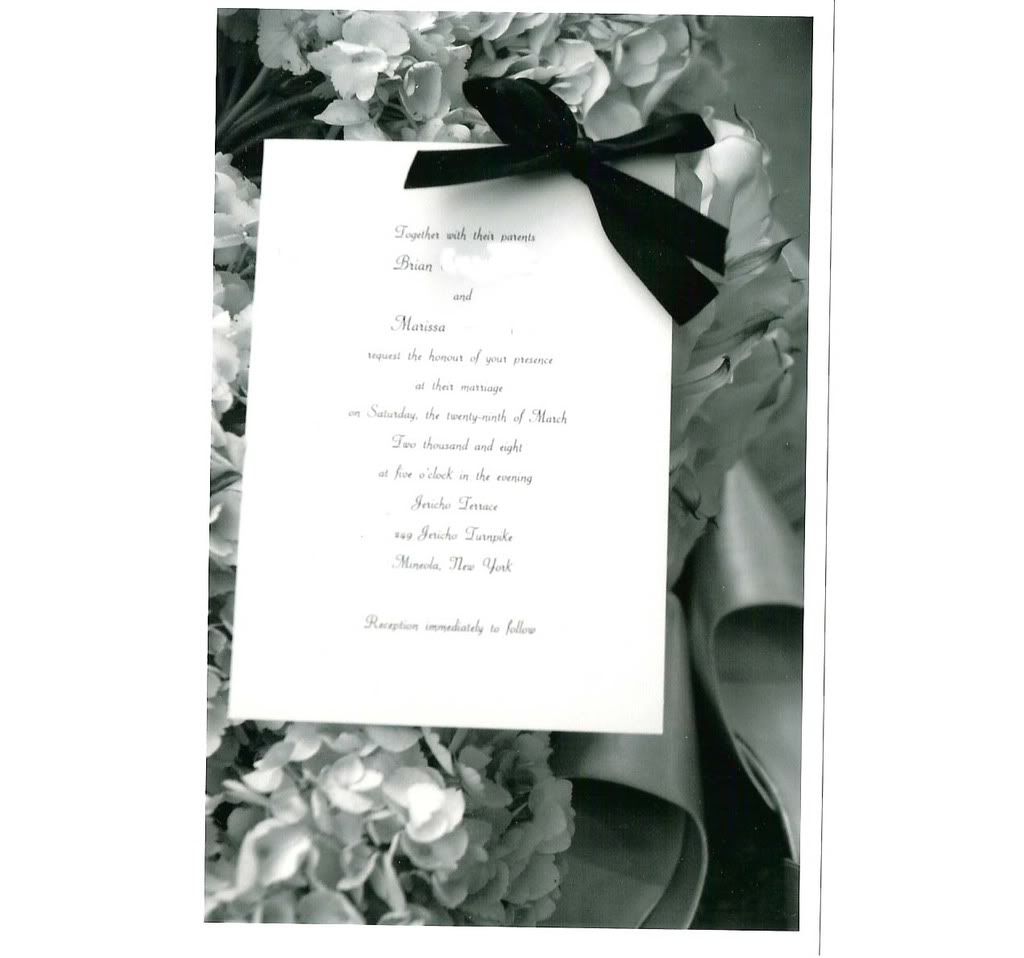 Together with their parents
Brian
and
Marissa
request the honour of your presence
at their marriage
on Saturday, the twenty-ninth of March
Two thousand and eight
at five o'clock in the evening
Jericho Terrace
249 Jericho Turnpike
Mineola, New York
Reception immediately to follow